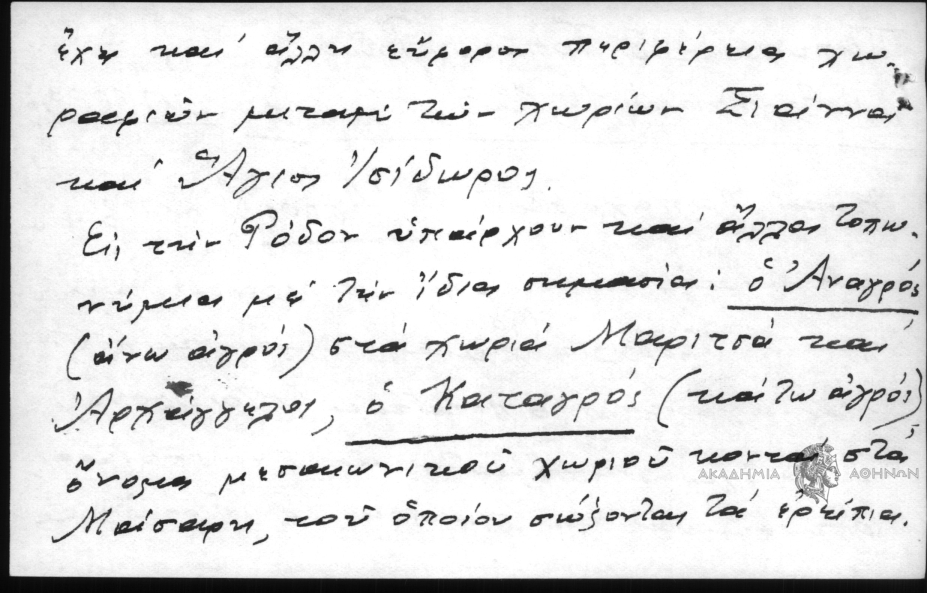 ἔχει καί ἄλλη εὔφορος περιφέρεια χω-
ραφιῶν μεταξύ τῶν χωρίων Σιάννα
καί Ἅγιος Ἰσίδωρος.
Εἰς τήν Ρόδον ὑπάρχουν καί ἄλλα τοπω-
νύμια μέ τήν ἴδια σημασία: ὁ Ἀναγρός
(ἄνω ἀγρός) στά χωριά Μαριτσά καί
Ἀρχάγγελος, ὁ Καταγρός (κάτω ἀγρός)
ὄνομα μεσαιωνικοῦ χωριοῦ κοντά στά
Μάσαρη, τοῦ ὁποίου σώζονται τά ἐρείπια.
ΑΚΑΔΗΜΙΑ ΑΘΗΝΩΝ